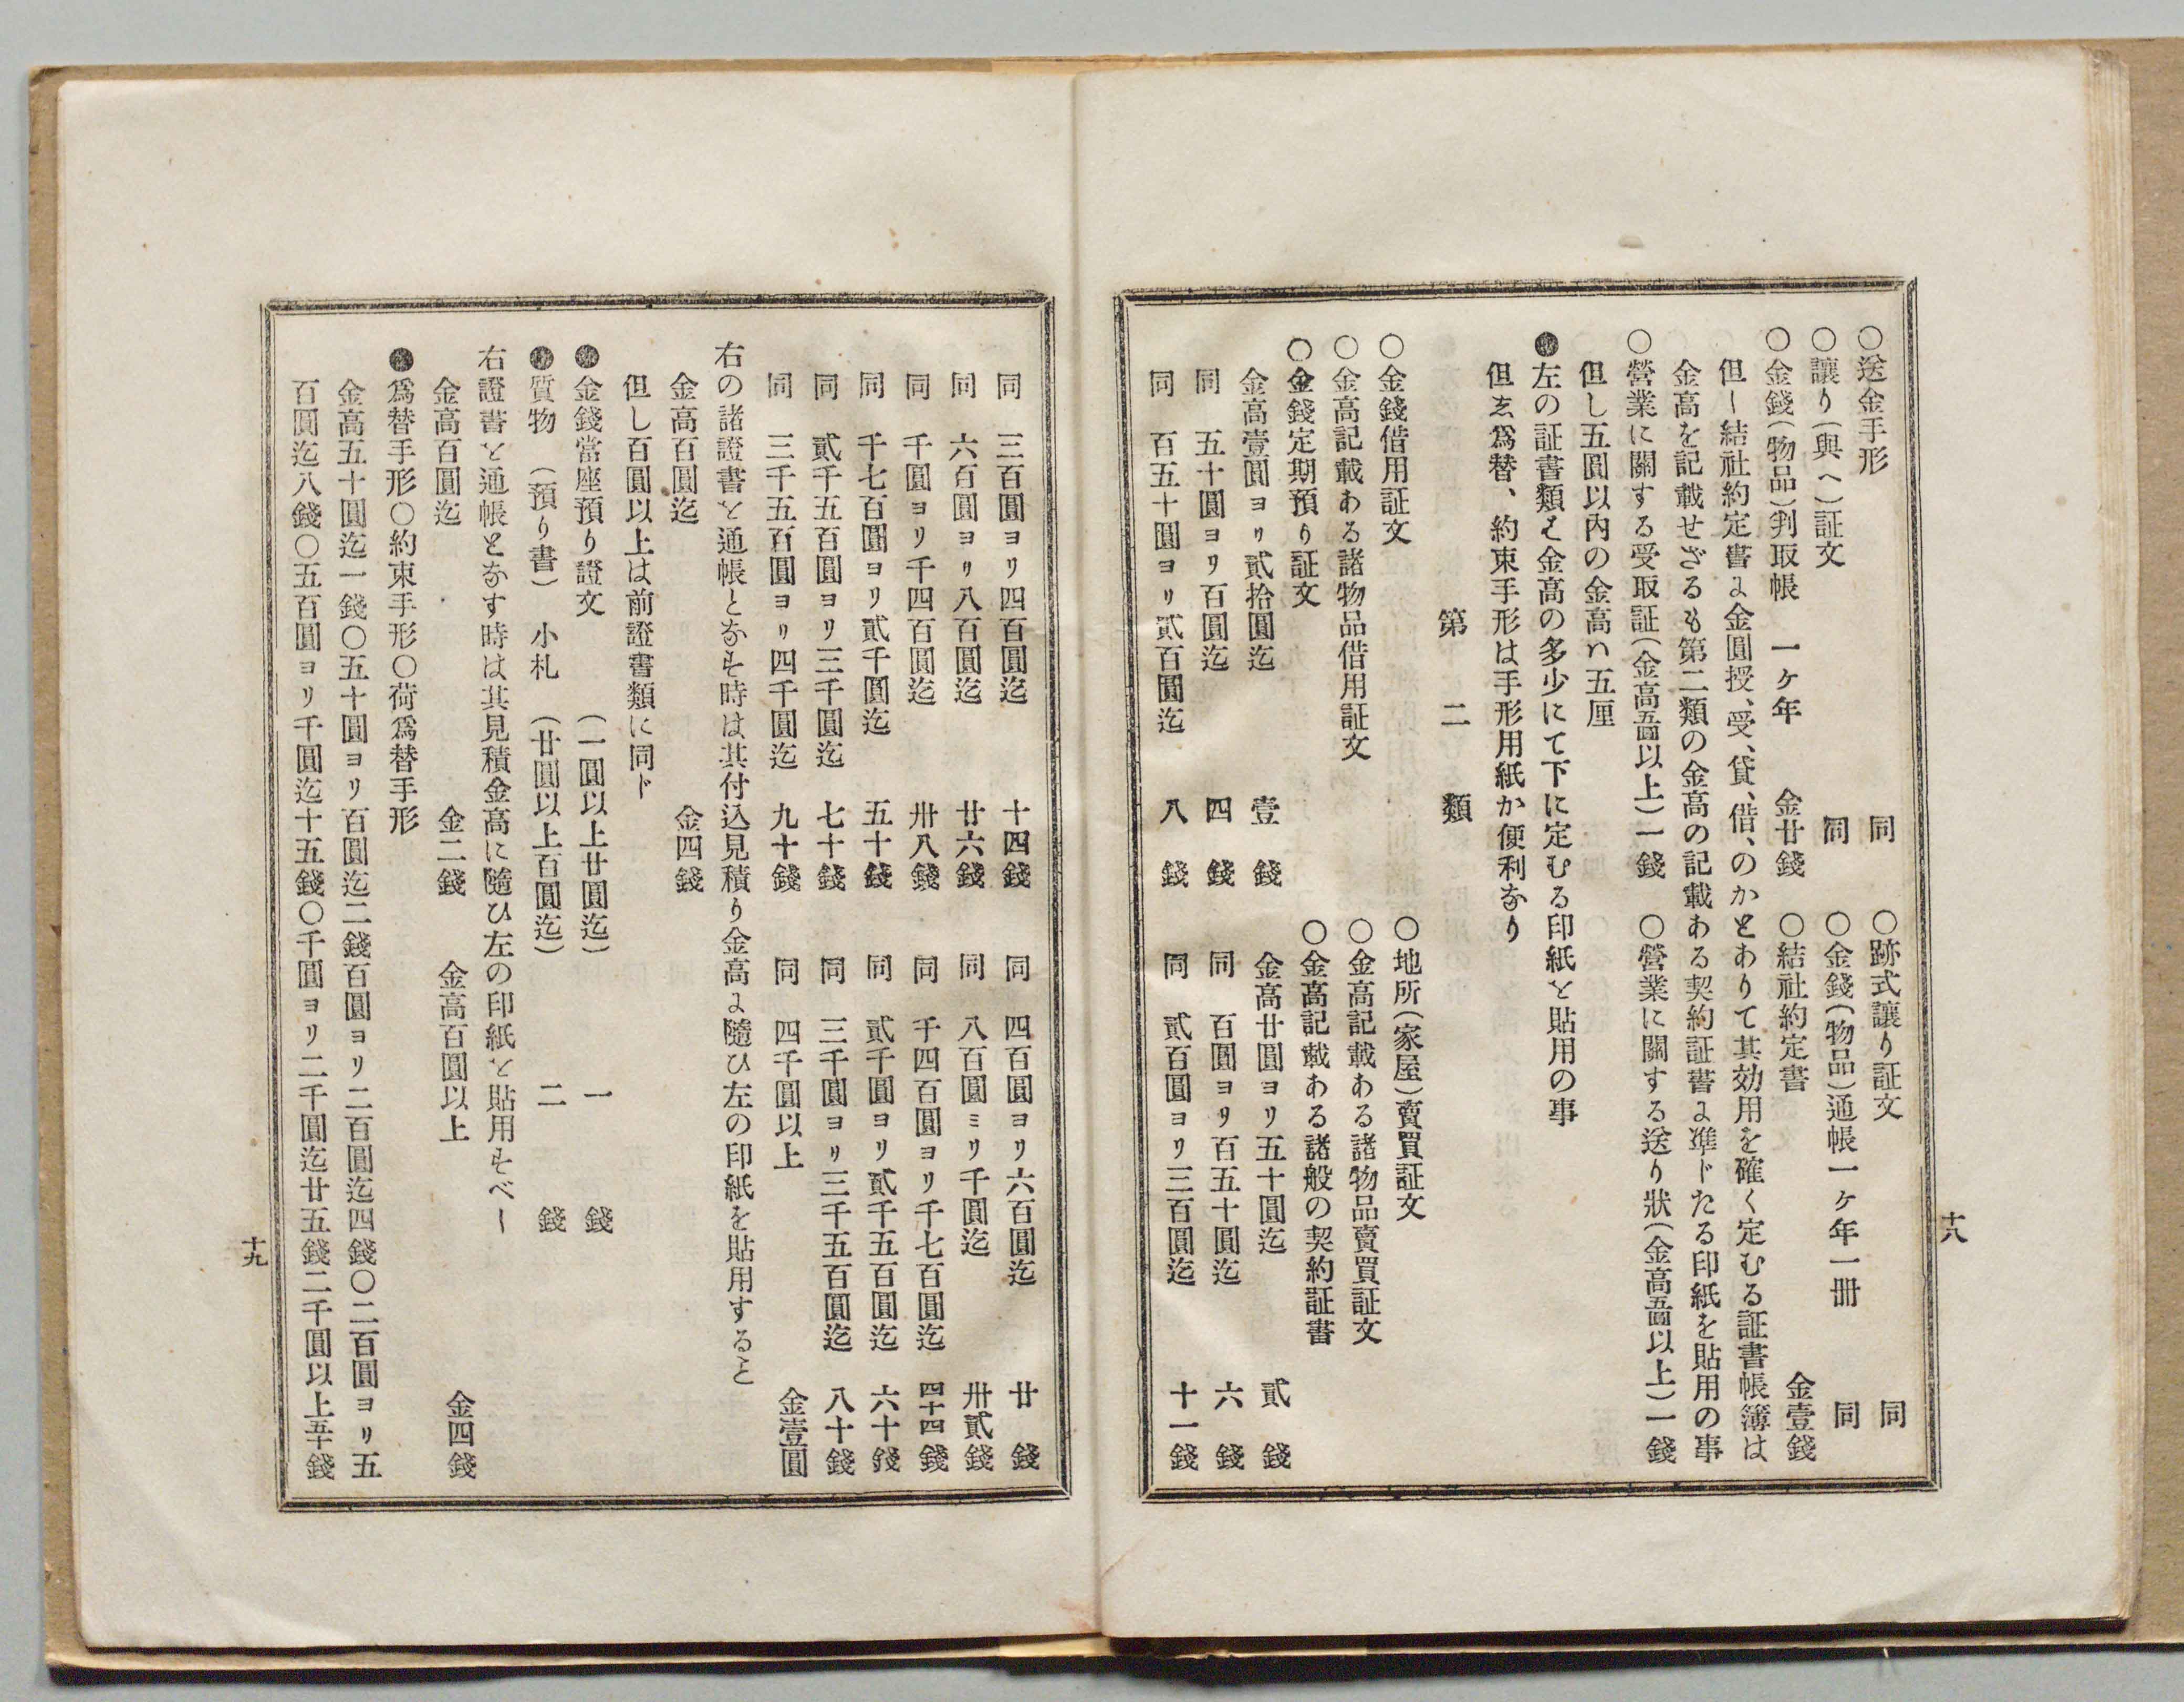 十八
○送金手形　同　○跡式讓り証文　同
○讓り(與へ)証文　同　○金錢(物品)通帳一ヶ年一冊　同
○金錢(物品)判取帳　一ヶ年　金廿錢　○結社約定書　金壹錢
但し結社約定書よ金圓授、受、貸、借、のかとありて其効用を確く定むる証書帳簿は
金高を記載せざるも第二類の金高の記載ある契約証書よ準ドたる印紙を貼用の事
○營業に關する受取証(金高五圓以上)一錢　○營業に關する送り狀(金高五圓以上)一錢
但し五圓以内の金高ハ五厘
●左の証書類え金高の多少にて下に定むる印紙と貼用の事
但ゑ爲替、約束手形は手形用紙か便利なり
第二類
○金錢借用証文　○地所(家屋)賣買証文
○金高記載ある諸物品借用証文　○金高記載ある諸物品賣買証文
○金錢定期預り証文　○金高記載ある諸般の契約証書
金高壹圓ヨリ貳拾圓迄　壹錢　金高廿圓ヨリ五十圓迄　貳錢
同　五十圓ヨリ百圓迄　四錢　同　百圓ヨリ百五十圓迄　六錢
同　百五十圓ヨリ貳百圓迄　八錢　同　貳百圓ヨリ三百圓迄　十一錢
同　三百圓ヨリ四百圓迄　十四錢　同　四百圓ヨリ六百圓迄　廿錢
同　六百圓ヨリ八百圓迄　廿六錢　同　八百圓ミリ千圓迄　卅貳錢
同　千圓ヨリ千四百圓迄　卅八錢　同　千四百圓ヨリ千七百圓迄　四十四錢
同　千七百圓ヨリ貳千圓迄　五十錢　同　貳千圓ヨリ貳千五百圓迄　六十錢
同　貳千五百圓ヨリ三千圓迄　七十錢　同　三千圓ヨリ三千五百圓迄　八十錢
同　三千五百圓ヨリ四千圓迄　九十錢　同　四千圓以上　金壹圓
右の諸證書と通帳となす時は其付込見積り金高よ隨ひ左の印紙を貼用すると
金高百圓迄　金四錢
但し百圓以上は前證書類に同ド
●金錢當座預り證文　(一圓以上廿圓迄)　一錢
●質物　(預り書)　小札　(廿圓以上百圓迄)　二錢
右證書と通帳となす時は其見積金高に隨ひ左の印紙と貼用すべし
金高百圓迄　金二錢　金高百圓以上　金四錢
●爲替手形○約束手形○荷爲替手形
金高五十圓迄一錢○五十圓ヨリ百圓迄二錢百圓ヨリ二百圓迄四錢○二百圓ヨリ五
百圓迄八錢○五百圓ヨリ千圓迄十五錢○千圓ヨリ二千圓迄廿五錢二千圓以上五十錢
十九